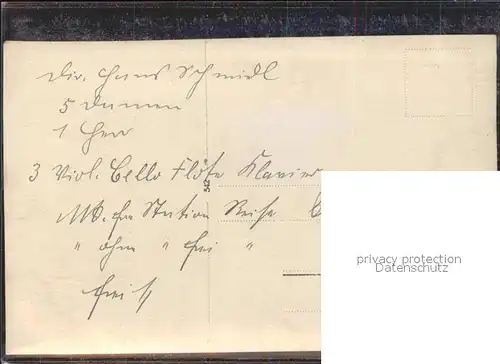 Dir. Hans Schmidl
5 Damen
1 Herr
3 Viol. Cello Flöte Klavier
Mk. Station Reise
" ohne " frei "
frei
privacy protection
Datenschutz